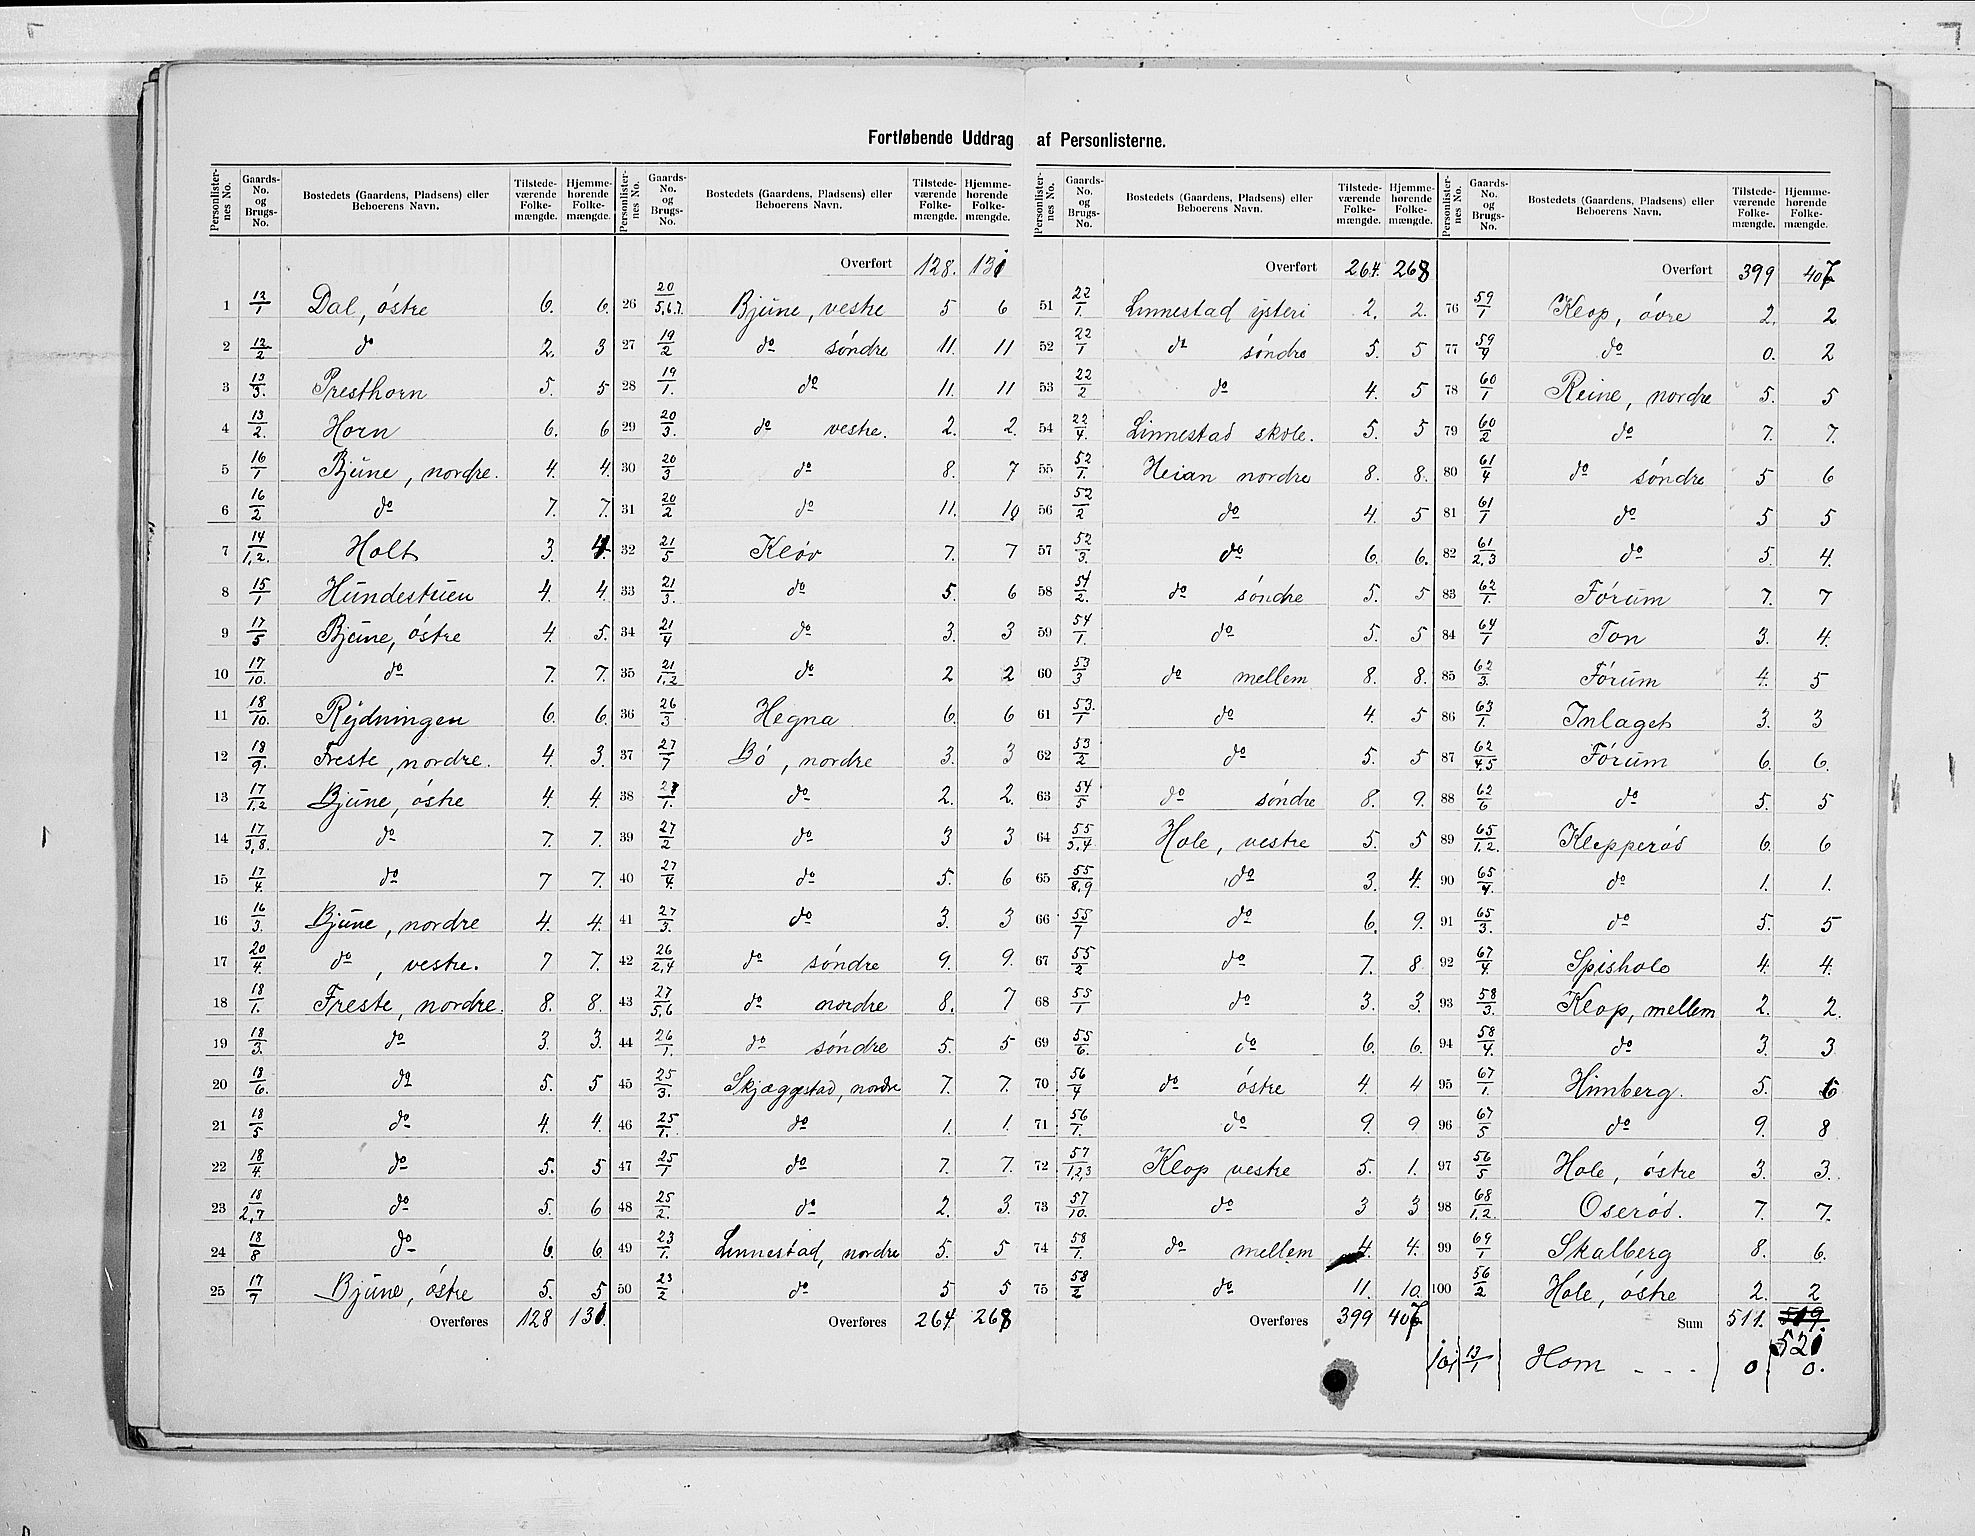 Fortløbende Uddrag af Personlisterne.
Personlister-nes No. | Gaards-No. og Brugs-No. | Bostedets (Gaardens, Pladsens) eller Beboerens Navn. | Tilstede-værende Folke-mængde. | Hjemme-hørende Folke-mængde.
1 | 12/1 | Dal, östre | 6. | 6.
2 | 12/2 | do | 2. | 3
3 | 13/3. | Presthorn | 5. | 5
4 | 13/2. | Horn | 6. | 6
5 | 16/1 | Bjune, nordre. | 4. | 4.
6 | 16/2 | do | 7. | 7.
7 | 14/1,2. | Holt | 3. | 4.
8 | 15/1 | Hundestuen | 4. | 4.
9 | 17/5 | Bjune, östre | 4. | 5.
10 | 17/10. | do | 7. | 7.
11 | 18/10. | Rydningen | 6. | 6.
12 | 18/9. | Freste, nordre. | 4. | 3.
13 | 17/1,2 | Bjune, östre | 4. | 4.
14 | 17/3,8. | do | 7. | 7.
15 | 17/4. | do | 7 | 7.
16 | 16/3. | Bjune, nordre | 4. | 4.
17 | 20/4. | do, vestre. | 7 | 7.
18 | 18/1. | Freste, nordre. | 8. | 8.
19 | 18/3. | do | 3. | 3.
20 | 18/6. | do | 5. | 5
21 | 18/5 | do | 4. | 4.
22 | 18/4. | do | 5. | 5
23 | 18/2,7 | do | 5. | 6
24 | 18/8 | do | 6. | 6
25 | 17/7 | Bjune, östre | 5. | 5
Overføres 128 | 131.
Personlister-nes No. | Gaards-No. og Brugs-No. | Bostedets (Gaardens, Pladsens) eller Beboerens Navn. | Tilstede-værende Folke-mængde. | Hjemme-hørende Folke-mængde.
Overført 128. | 131
26 | 20/5,6,7. | Bjune, vestre | 5 | 6
27 | 19/2 | do söndre | 11. | 11
28 | 19/1. | do | 11. | 11
29 | 20/3. | do vestre. | 2. | 2.
30 | 20/3 | do | 8. | 7
31 | 20/2 | do | 11. | 10
32 | 21/5 | Klöv | 7. | 7
33 | 21/3. | do | 5. | 6
34 | 21/4 | do | 3. | 3
35 | 21/1,2 | do | 2 | 2
36 | 26/3 | Hegna | 6. | 6
37 | 27/7 | Bö, nordre | 3. | 3
38 | 27/1. | do | 2. | 2.
39 | 27/2 | do | 3 | 3
40 | 27/4. | do | 5. | 6
41 | 27/3. | do | 3. | 3
42 | 26/2,4 | do söndre | 9. | 9.
43 | 27/5,6 | do nordre | 8. | 7
44 | 26/1. | do söndre | 5. | 5
45 | 25/3. | Skjæggestad, nordre | 7. | 7.
46 | 25/1. | do | 1. | 1.
47 | 25/1 | do | 7. | 7.
48 | 25/2. | do | 2. | 3.
49 | 23/1. | Linnestad, nordre | 5. | 5
50 | 23/2 | do | 5 | 5
Overføres 264. | 268
Personlister-nes No. | Gaards-No. og Brugs-No. | Bostedets (Gaardens, Pladsens) eller Beboerens Navn. | Tilstede-værende Folke-mængde. | Hjemme-hørende Folke-mængde.
Overført 264. | 268
51 | 22/1. | Linnestad ysteri | 2. | 2.
52 | 22/1 | do söndre | 5. | 5
53 | 22/2 | do | 4. | 5
54 | 22/4. | Linnestad skole. | 5. | 5
55 | 52/1. | Heian nordre | 8. | 8.
56 | 52/2 | do | 4. | 5
57 | 52/3. | do | 6. | 6.
58 | 54/2. | do söndre | 5. | 5
59 | 54/1. | do | 5. | 5
60 | 53/3 | do mellem | 8. | 8.
61 | 53./1 | do | 4. | 5
62 | 53/2 | do | 5. | 5
63 | 54/5 | do söndre | 8. | 9.
64 | 55/3,4 | Hole, vestre | 5. | 5
65 | 55/8,9 | do | 3. | 4.
66 | 55/7 | do | 6. | 9.
67 | 55/2 | do | 7. | 8
68 | 55/1 | do | 3. | 3.
69 | 55/6. | do | 6. | 6.
70 | 56/4 | do östre | 4. | 4
71 | 56/1. | do | 9. | 9
72 | 57/1,2,3 | Klop vestre | 5. | 1.
73 | 57/10. | do | 3 | 3
74 | 58/1. | do mellem | 4. | 4.
75 | 58/2 | do | 11. | 10.
Overføres 399 | 407
Personlister-nes No. | Gaards-No. og Brugs-No. | Bostedets (Gaardens, Pladsens) eller Beboerens Navn. | Tilstede-værende Folke-mængde. | Hjemme-hørende Folke-mængde.
Overført 399 | 407
76 | 59/1 | Klop, övre | 2. | 2
77 | 59/4 | do | 0. | 2
78 | 60/1 | Reine, nordre | 5. | 5
79 | 60/2 | do | 7. | 7.
80 | 61/4 | do söndre | 5 | 6
81 | 61/1 | do | 5 | 5
82 | 61/2,3 | do | 5. | 4.
83 | 62/1. | Fórum | 7. | 7
84 | 64/1 | Ton | 3. | 4.
85 | 62/3. | Fórum | 4. | 5
86 | 63/1. | Inlaget | 3. | 3
87 | 62/4,5 | Fórum | 6. | 6.
88 | 62/6 | do | 5. | 5
89 | 65/1,2. | Klepperöd | 6. | 6
90 | 65/4. | do | 1. | 1.
91 | 65/3. | do | 5. | 5
92 | 67/4 | Spishole | 4. | 4.
93 | 58/3. | Klop, mellem | 2. | 2.
94 | 58/4. | do | 3. | 3
95 | 67/1. | Himberg. | 5. | 6
96 | 67/5 | do | 9. | 8
97 | 56/5 | Hole, östre | 3. | 3.
98 | 68/1,2. | Oseröd. | 7. | 7.
99 | 69/1 | Skalberg | 8. | 6.
100 | 56/2 | Hole, östre | 2. | 2
Sum 511. | 519.
521
101 | 13/1 | Horn - - - | 0. | 0.